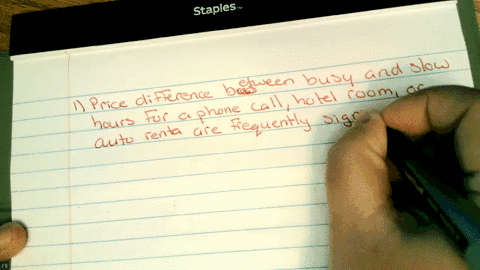 Staples
1) Price difference between busy and slow
hours for a phone call, hotel room, or
auto renta are frequently sign